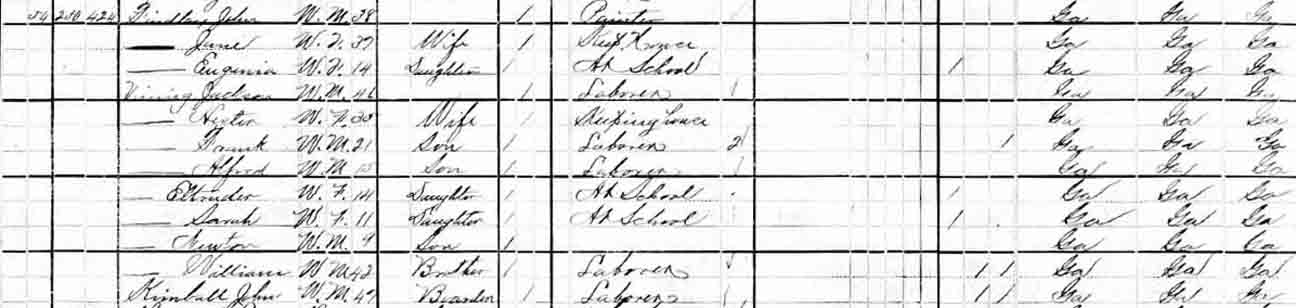 54 250 424 Findley John W. M. 38 1 Painter Ga Ga Ga
— Jane W. F. 37 Wife 1 Keep House Ga Ga Ga
— Eugenia W. F. 14 Daughter 1 At School 1 Ga Ga Ga
Vining Jackson W. M. 46 1 Laborer 1 Ga Ga Ga
— W. F. Wife 1 Keeping House Ga Ga Ga
— Frank W. M. 21 Son 1 Laborer 2 1 Ga Ga Ga
— Alfred W. M. Son 1 Laborer Ga Ga Ga
— W. F. 14 Daughter 1 At School 1 Ga Ga Ga
— Sarah W. F. 11 Daughter 1 At School 1 Ga Ga Ga
— Newton W. M. 9 Son 1 Ga Ga Ga
— William W. M. 42 Brother 1 Laborer 1 1 Ga Ga Ga
Kimball John W. M. 47 Boarder 1 Laborer 1 1 Ga Ga Ga